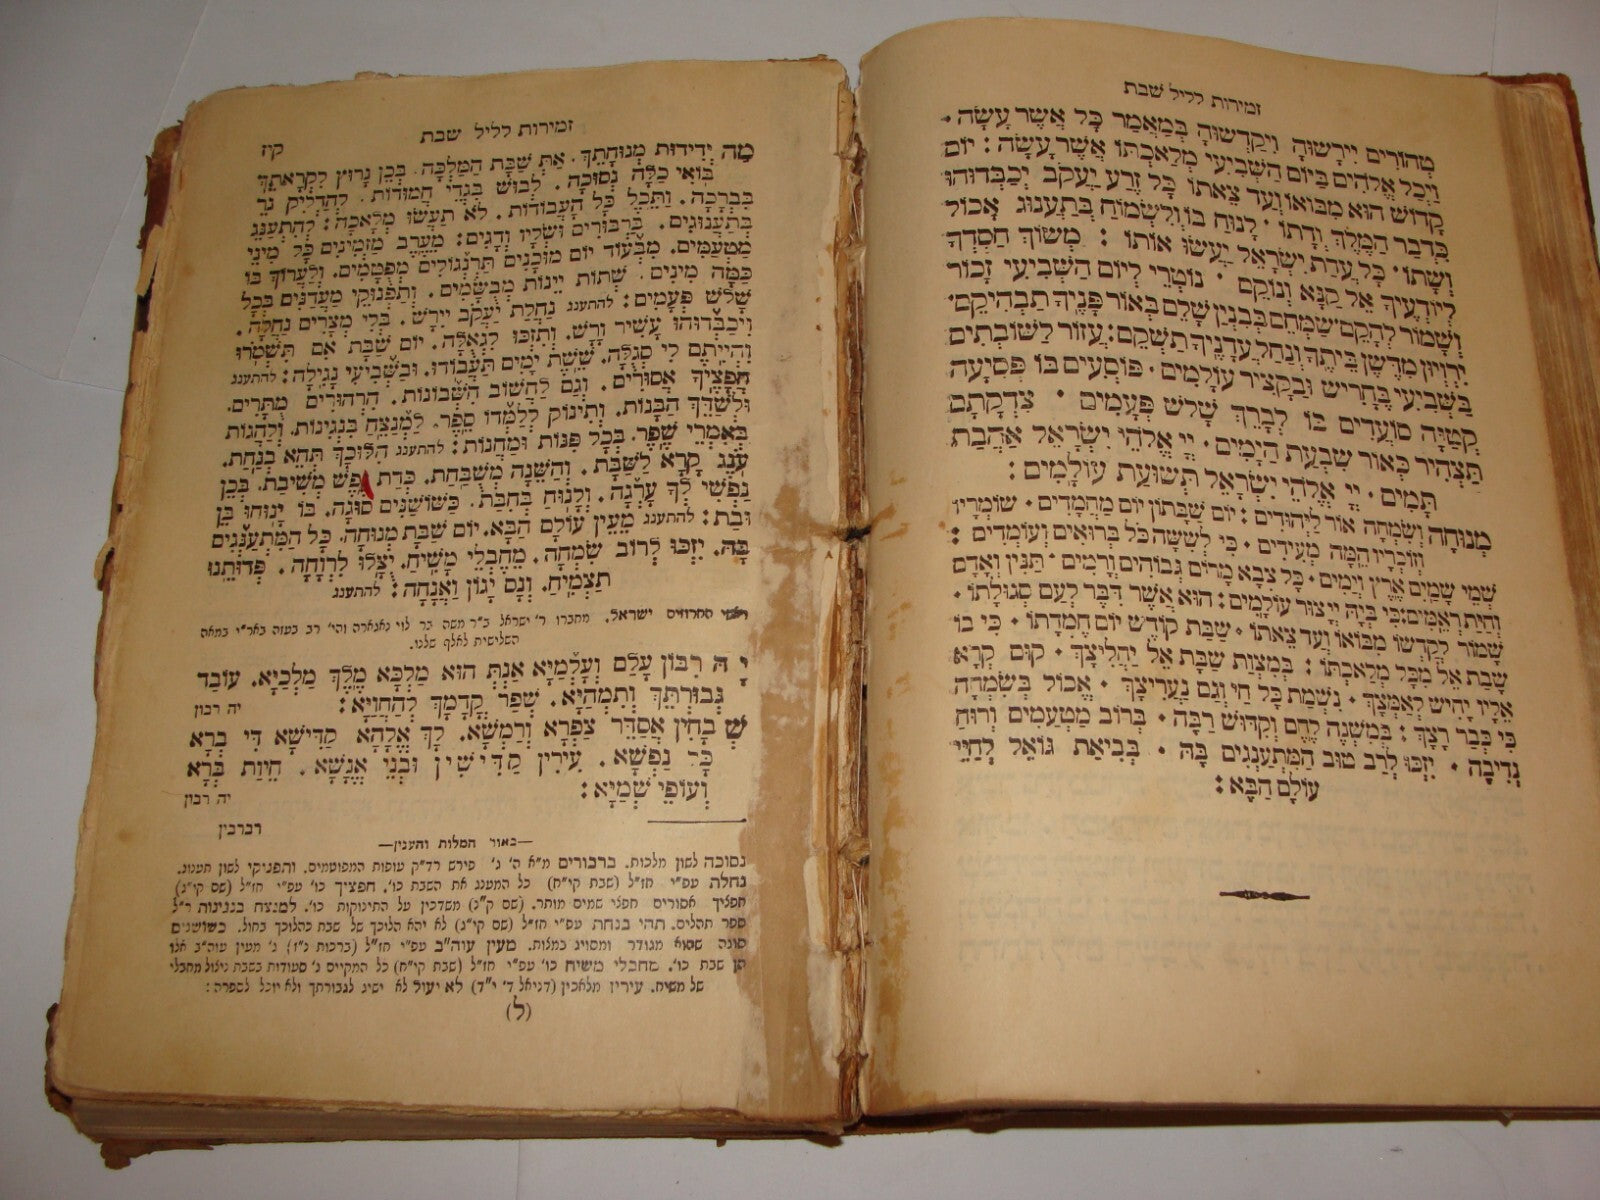 זמירות לליל שבת
טְהוֹרִים יִירָשׁוּהָ וִיקַדְּשׁוּהָ בְּמַאֲמַר כָּל אֲשֶׁר עָשָׂה.
וַיְכַל אֱלֹהִים בַּיּוֹם הַשְּׁבִיעִי מְלַאכְתּוֹ אֲשֶׁר עָשָׂה: יוֹם
קָדוֹשׁ הוּא מִבּוֹאוֹ וְעַד צֵאתוֹ כָּל זֶרַע יַעֲקֹב יְכַבְּדוּהוּ
כִּדְבַר הַמֶּלֶךְ וְדָתוֹ. לָנוּחַ בּוֹ וְלִשְׂמוֹחַ בְּתַעֲנוּג אָכוֹל
וְשָׁתוֹ. כָּל עֲדַת יִשְׂרָאֵל יַעֲשׂוּ אוֹתוֹ: מְשׁוֹךְ חַסְדְּךָ
לְיוֹדְעֶיךָ אֵל קַנָּא וְנוֹקֵם. נוֹטְרֵי לְיוֹם הַשְּׁבִיעִי זָכוֹר
וְשָׁמוֹר לְהָקֵם שַׂמְּחֵם בְּבִנְיַן שָׁלֵם בְּאוֹר פָּנֶיךָ תַבְהִיקֵם.
יִרְוְיוּן מִדֶּשֶׁן בֵּיתֶךָ וְנַחַל עֲדָנֶיךָ תַשְׁקֵם: עֲזוֹר לַשּׁוֹבְתִים
בַּשְּׁבִיעִי בֶּחָרִישׁ וּבַקָּצִיר עוֹלָמִים. פּוֹסְעִים בּוֹ פְּסִיעָה
קְטַנָּה סוֹעֲדִים בּוֹ לְבָרֵךְ שָׁלֹשׁ פְּעָמִים. צִדְקָתָם
תַּצְהִיר כְּאוֹר שִׁבְעַת הַיָּמִים. יְיָ אֱלֹהֵי יִשְׂרָאֵל אַהֲבַת
תָּמִים. יְיָ אֱלֹהֵי יִשְׂרָאֵל תְּשׁוּעַת עוֹלָמִים:
מְנוּחָה וְשִׂמְחָה אוֹר לַיְּהוּדִים: יוֹם שַׁבָּתוֹן יוֹם מַחֲמַדִּים. שׁוֹמְרָיו
וְזוֹכְרָיו הֵמָּה מְעִידִים. כִּי לְשִׁשָּׁה כֹּל בְּרוּאִים וְעוֹמְדִים:
שְׁמֵי שָׁמַיִם אֶרֶץ וְיַמִּים. כָּל צְבָא מָרוֹם גְּבוֹהִים וְרָמִים. תַּנִּין וְאָדָם
וְחַיַּת רְאֵמִים: כִּי בְּיָהּ יְיָ צוּר עוֹלָמִים: הוּא אֲשֶׁר דִּבֶּר לְעַם סְגֻלָּתוֹ.
שָׁמוֹר לְקַדְּשׁוֹ מִבּוֹאוֹ וְעַד צֵאתוֹ. שַׁבַּת קוֹדֶשׁ יוֹם חֶמְדָּתוֹ. כִּי בוֹ
שָׁבַת אֵל מִכָּל מְלַאכְתּוֹ: בְּמִצְוַת שַׁבָּת אֵל יַחֲלִיצָךְ. קוּם קְרָא
אֵלָיו יָחִישׁ לְאַמְּצָךְ. נִשְׁמַת כָּל חַי וְגַם נַעֲרִיצָךְ. אֱכוֹל בְּשִׂמְחָה
כִּי כְבָר רָצָךְ: בְּמִשְׁנֶה לֶחֶם וְקִדּוּשׁ רַבָּה. בְּרוֹב מַטְעַמִּים וְרוּחַ
נְדִיבָה. יִזְכּוּ לְרַב טוּב הַמִּתְעַנְּגִים בָּהּ. בְּבִיאַת גּוֹאֵל לְחַיֵּי
עוֹלָם הַבָּא:
זמירות לליל שבת
קיז
מַה יְּדִידוּת מְנוּחָתֵךְ. אַתְּ שַׁבָּת הַמַּלְכָּה. בְּכֵן נָרוּץ לִקְרָאתֵךְ
בּוֹאִי כַלָּה נְסוּכָה. לְבוּשׁ בִּגְדֵי חֲמוּדוֹת. לְהַדְלִיק נֵר
בִּבְרָכָה. וַתֵּכֶל כָּל הָעֲבוֹדוֹת. לֹא תַעֲשׂוּ מְלָאכָה: לְהִתְעַנֵּג
בְּתַעֲנוּגִים. בַּרְבּוּרִים וּשְׂלָיו וְדָגִים: מֵעֶרֶב מַזְמִינִים כָּל מִינֵי
מַטְעַמִּים. מִבְּעוֹד יוֹם מוּכָנִים תַּרְנְגוֹלִים מְפֻטָּמִים. וְלַעֲרוֹךְ בּוֹ
כַּמָּה מִינִים. שְׁתוֹת יֵינוֹת מְבֻשָּׂמִים. וְתַפְנוּקֵי מַעֲדַנִּים בְּכָל
שָׁלֹשׁ פְּעָמִים: להתענג נַחֲלַת יַעֲקֹב יִירָשׁ. בְּלִי מְצָרִים נַחֲלָה.
וִיכַבְּדוּהוּ עָשִׁיר וָרָשׁ. וְתִזְכּוּ לִגְאֻלָּה. יוֹם שַׁבָּת אִם תִּשְׁמֹרוּ
וִהְיִיתֶם לִי סְגֻלָּה. שֵׁשֶׁת יָמִים תַּעֲבוֹדוּ. וּבַשְּׁבִיעִי נָגִילָה: להתענג
חֲפָצֶיךָ אֲסוּרִים. וְגַם לַחֲשׁוֹב חֶשְׁבּוֹנוֹת. הִרְהוּרִים מֻתָּרִים.
וּלְשַׁדֵּךְ הַבָּנוֹת. וְתִינוֹק לְלַמְּדוֹ סֵפֶר. לַמְנַצֵּחַ בִּנְגִינוֹת. וְלַהֲגוֹת
בְּאִמְרֵי שֶׁפֶר. בְּכָל פִּנּוֹת וּמַחֲנוֹת: להתענג הִלּוּכָךְ תְּהֵא בְנַחַת.
עֹנֶג קְרָא לַשַּׁבָּת. וְהַשֵּׁנָה מְשֻׁבַּחַת. כְּדַת נֶפֶשׁ מְשִׁיבַת. בְּכֵן
נַפְשִׁי לְךָ עָרְגָה. וְלָנוּחַ בְּחִבַּת. כַּשּׁוֹשַׁנִּים סוּגָה. בּוֹ יָנוּחוּ בֵּן
וּבַת: להתענג מֵעֵין עוֹלָם הַבָּא. יוֹם שַׁבָּת מְנוּחָה. כָּל הַמִּתְעַנְּגִים
בָּהּ. יִזְכּוּ לְרוֹב שִׂמְחָה. מֵחֶבְלֵי מָשִׁיחַ. יֻצָּלוּ לִרְוָחָה. פְּדוּתֵנוּ
תַצְמִיחַ. וְנָס יָגוֹן וַאֲנָחָה: להתענג
ראשי החרוזים ישראל. מחברו ר' ישראל ב"ר משה בר לוי נאגארה והי' רב בעזה בא"י במאה
השלישית לאלף שלנו.
יָהּ רִבּוֹן עָלַם וְעָלְמַיָּא אַנְתְּ הוּא מַלְכָּא מֶלֶךְ מַלְכַיָּא. עוֹבַד
גְּבוּרְתֵּךְ וְתִמְהַיָּא. שְׁפַר קֳדָמָךְ לְהַחֲוָיָא: יה רבון
שְׁבָחִין אֲסַדֵּר צַפְרָא וְרַמְשָׁא. לָךְ אֱלָהָא קַדִּישָׁא דִּי בְרָא
כָּל נַפְשָׁא. עִירִין קַדִּישִׁין וּבְנֵי אֱנָשָׁא. חֵיוַת בְּרָא
וְעוֹפֵי שְׁמַיָּא: יה רבון
רברבין
—באור המלות והענין—
נסוכה לשון מלכות. ברבורים מ"א ה' ג' פירש רד"ק עופות המפוטמים. ותפנוקי לשון תענוג.
נחלת עפ"י חז"ל (שבת קי"ח) כל המענג את השבת כו'. חפציך כו' עפ"י חז"ל (שם קי"ג)
חפציך אסורים חפצי שמים מותר. (שם ק"נ) משדכין על התינוקות כו'. למנצח בנגינות ר"ל
ספר תהלים. תהי בנחת עפ"י חז"ל (שם קי"ג) לא יהא הלוכך של שבת כהלוכך בחול. כשושנים
סוגה שהוא מגודר ומסויג במצות. מעין עוה"ב עפ"י חז"ל (ברכות נ"ז) ג' מעין עוה"ב אלו
הן שבת כו'. מחבלי משיח כו' עפ"י חז"ל (שבת קי"ח) כל המקיים ג' סעודות בשבת ניצול מחבלי
של משיח. עירין מלאכין (דניאל ד' י"ד) לא יעול לא ישיג לגבורתך ולא יוכל לספרה:
(ל)